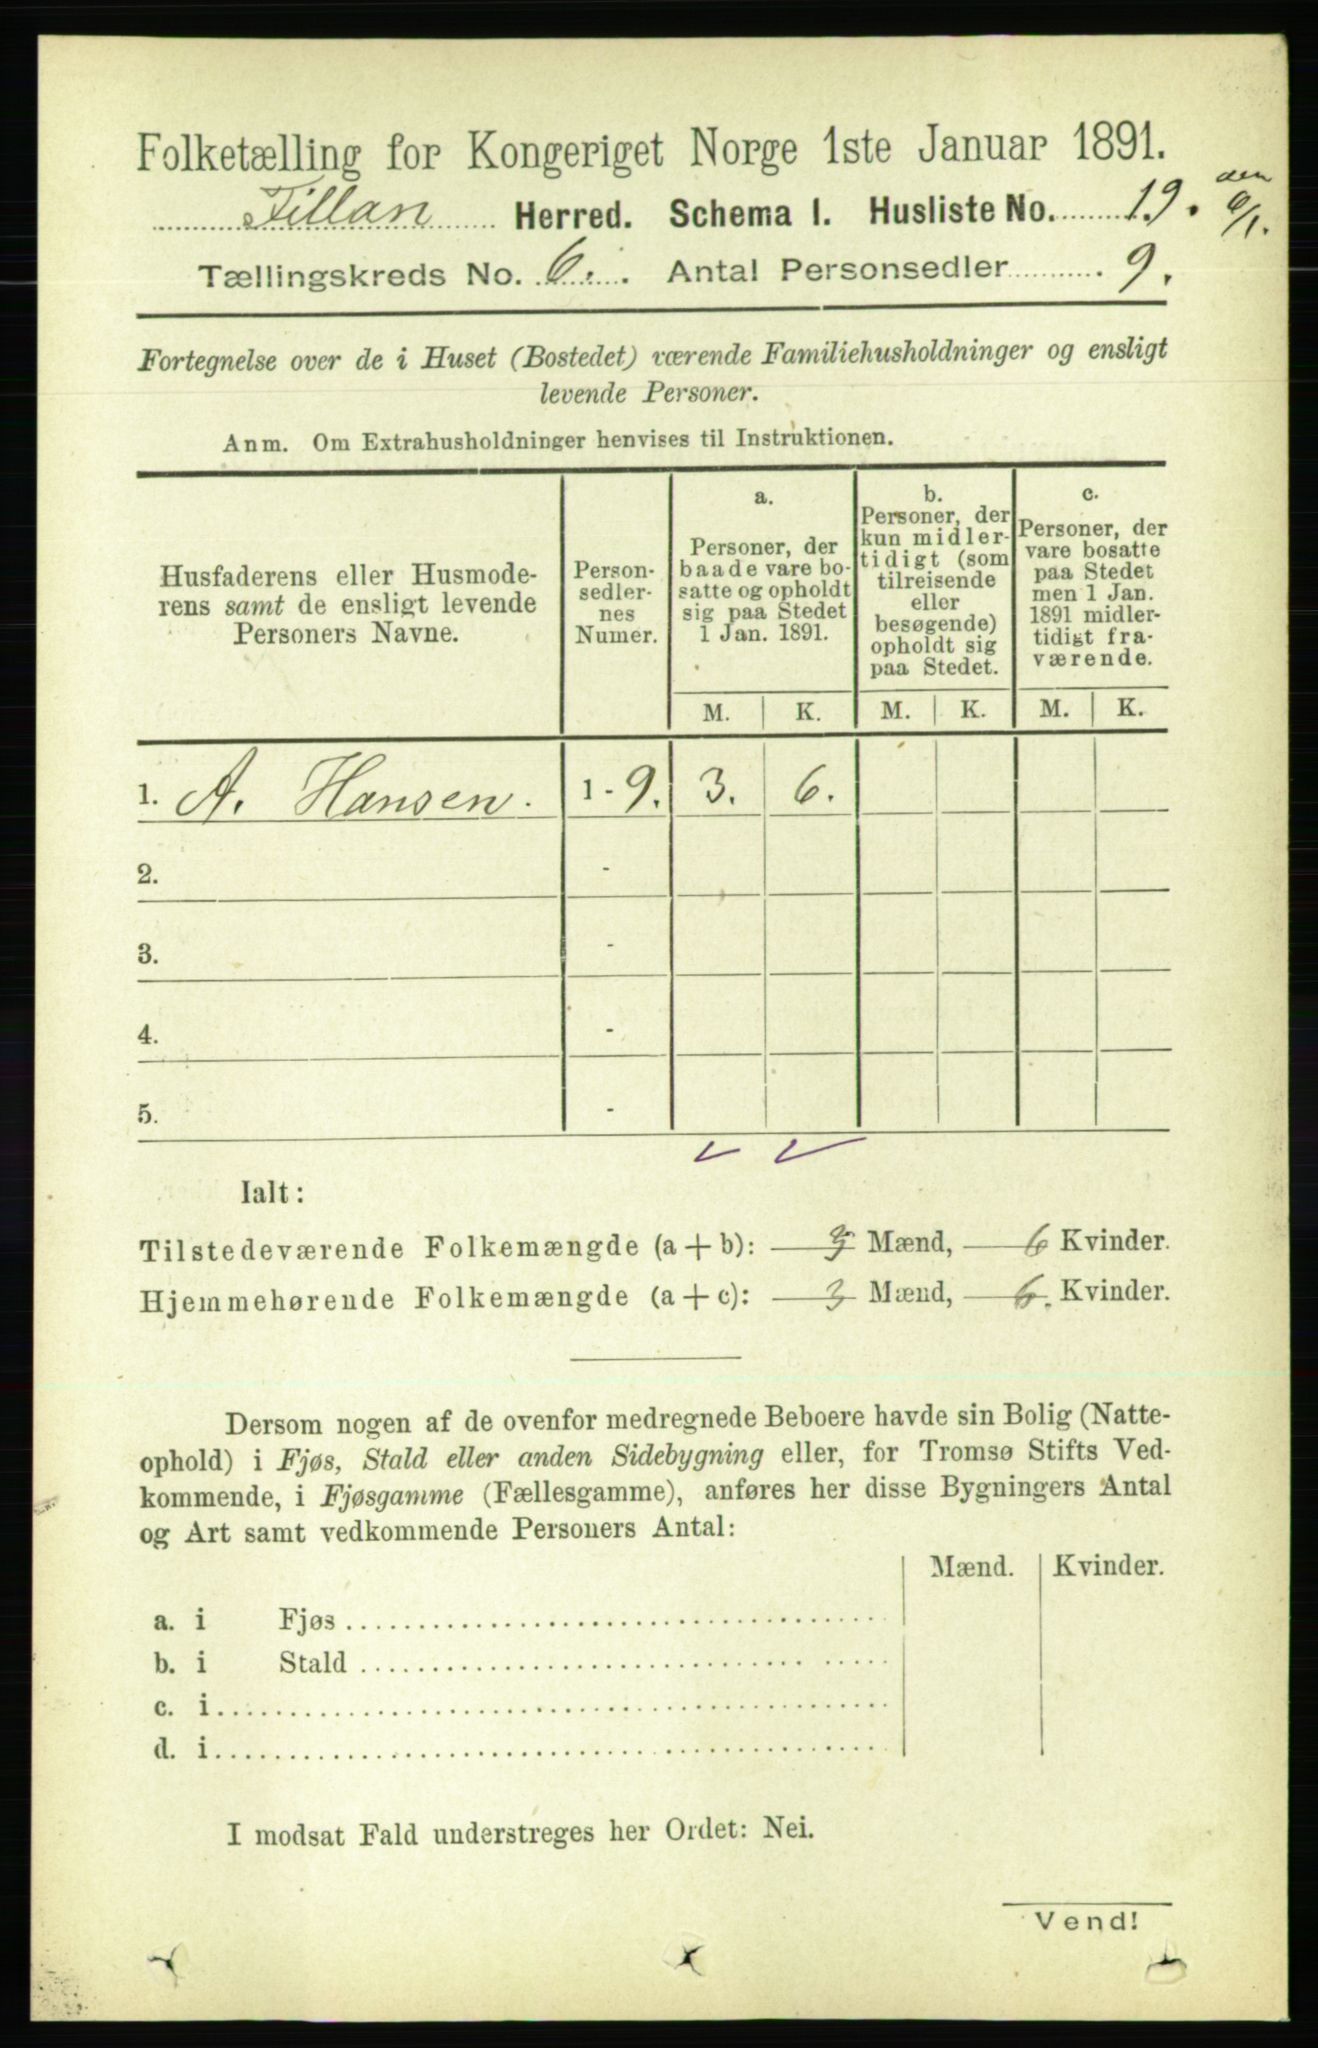 Folketælling for Kongeriget Norge 1ste Januar 1891.
Fillan Herred. Schema 1. Husliste No. 19. den 9/1.
Tællingskreds No. 6. Antal Personsedler 9.
Fortegnelse over de i Huset (Bostedet) værende Familiehusholdninger og ensligt
levende Personer.
Anm. Om Extrahusholdninger henvises til Instruktionen.
Husfaderens eller Husmode-
rens samt de ensligt levende
Personers Navne.
Person-
sedler-
nes
Numer.
a.
Personer, der
baade vare bo-
satte og opholdt
sig paa Stedet
1 Jan. 1891.
b.
Personer, der
kun midler-
tidigt (som
tilreisende
eller
besøgende)
opholdt sig
paa Stedet.
c.
Personer, der
vare bosatte
paa Stedet
men 1 Jan.
1891 midler-
tidigt fra-
værende.
M. K. M. K. M. K.
1. A. Hansen. 1 - 9. 3. 6.
2. -
3. -
4. -
5. -
Ialt:
Tilstedeværende Folkemængde (a + b): 3 Mænd, 6 Kvinder.
Hjemmehørende Folkemængde (a + c): 3 Mænd, 6. Kvinder.
Dersom nogen af de ovenfor medregnede Beboere havde sin Bolig (Natte-
ophold) i Fjøs, Stald eller anden Sidebygning eller, for Tromsø Stifts Ved-
kommende, i Fjøsgamme (Fællesgamme), anføres her disse Bygningers Antal
og Art samt vedkommende Personers Antal:
Mænd. Kvinder.
a. i Fjøs
b. i Stald
c. i
d. i
I modsat Fald understreges her Ordet: Nei.
Vend!